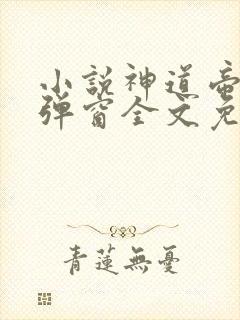 小說神道帝
彈窗全文免
青蓮無憂